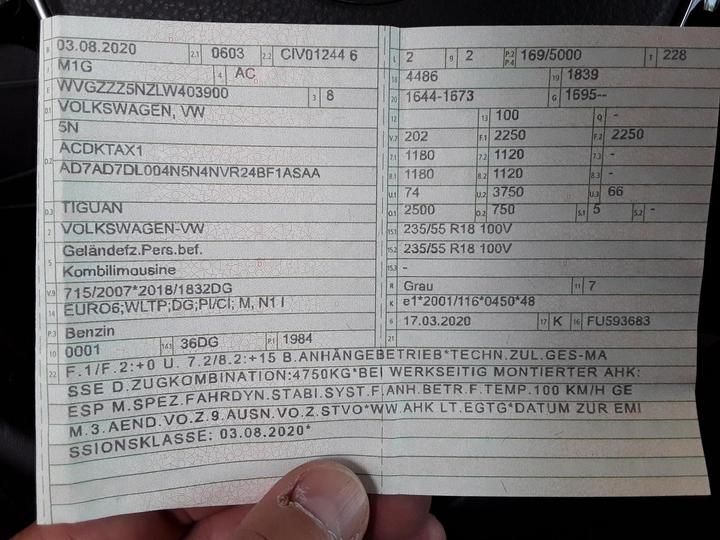 B 03.08.2020 2.1 0603 2.2 CIV01244 6
J M1G 4 AC
E WVGZZZ5NZLW403900 3 8
D.1 VOLKSWAGEN, VW
5N
D.2 ACDKTAX1
AD7AD7DL004N5N4NVR24BF1ASAA
D.3 TIGUAN
2 VOLKSWAGEN-VW
5 Geländefz.Pers.bef.
Kombilimousine
V.9 715/2007*2018/1832DG
14 EURO6;WLTP;DG;PI/CI; M, N1 I
P.3 Benzin
10 0001 14.1 36DG P.1 1984
L 2 9 2 P.2 P.4 169/5000 T 228
18 4486 19 1839
20 1644-1673 G 1695--
12 13 100 Q -
V.7 202 F.1 2250 F.2 2250
7.1 1180 7.2 1120 7.3 -
8.1 1180 8.2 1120 8.3 -
U.1 74 U.2 3750 U.3 66
O.1 2500 O.2 750 S.1 5 S.2 -
15.1 235/55 R18 100V
15.2 235/55 R18 100V
15.3 -
R Grau 11 7
K e1*2001/116*0450*48
6 17.03.2020 17 K 16 FU593683
21
22 F.1/F.2:+0 U. 7.2/8.2:+15 B.ANHÄNGEBETRIEB*TECHN.ZUL.GES-MA
SSE D.ZUGKOMBINATION:4750KG*BEI WERKSEITIG MONTIERTER AHK:
ESP M.SPEZ.FAHRDYN.STABI.SYST.F.ANH.BETR.F.TEMP.100 KM/H GE
M.3.AEND.VO.Z.9.AUSN.VO.Z.STVO*WW.AHK LT.EGTG*DATUM ZUR EMI
SSIONSKLASSE: 03.08.2020*